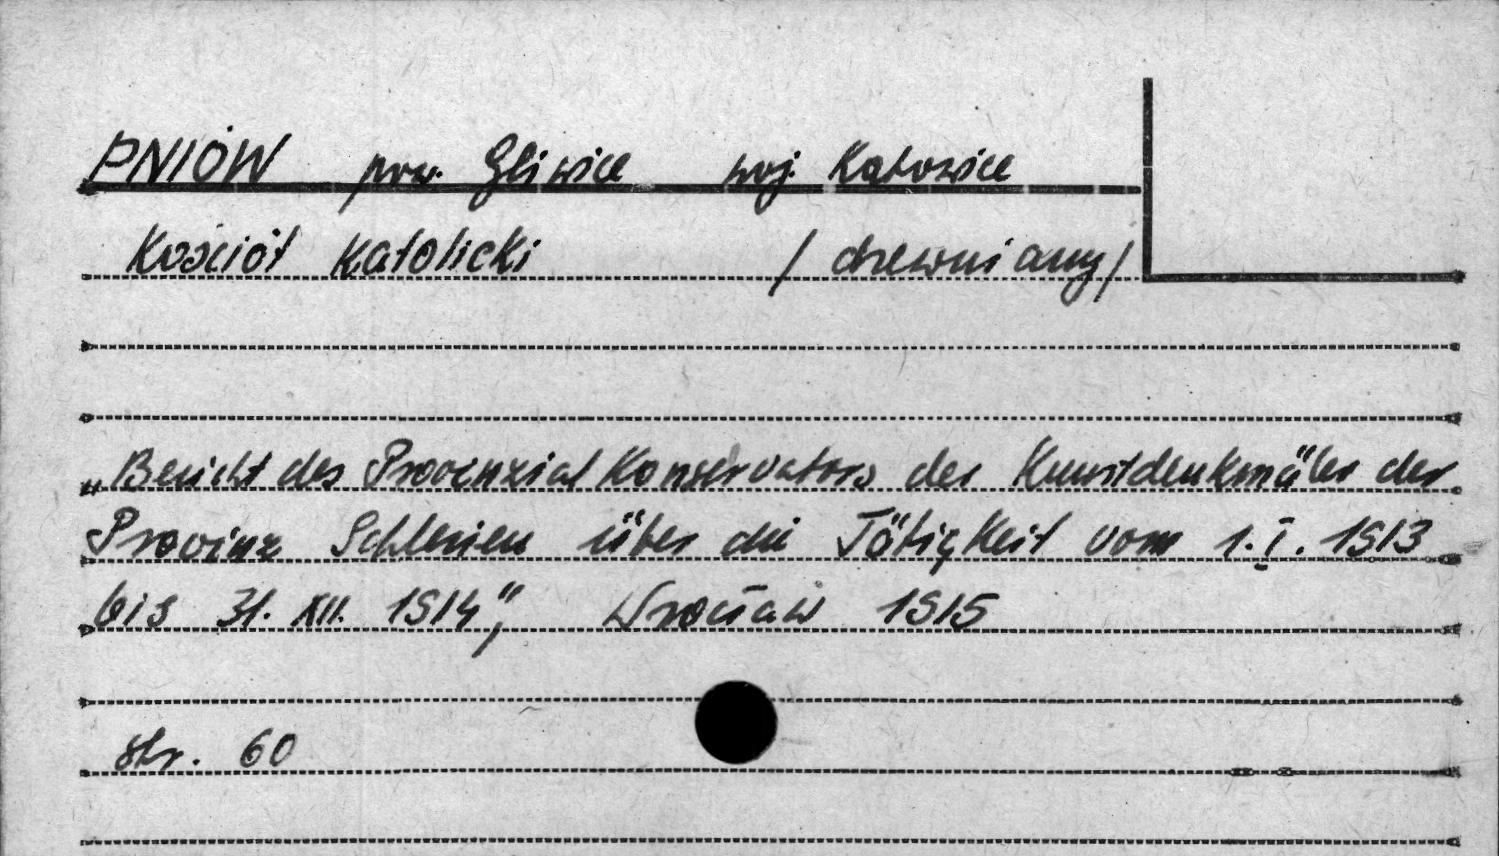 PNIÓW pow. Gliwice woj. Katowice
Kościół Katolicki / drewniany/
„Bericht des Provinzial Konservators der Kunstdenkmäler der
Provinz Schlesien über die Tätigkeit vom 1.I.1913
bis 31. XII. 1914", Wrocław 1915
str. 60